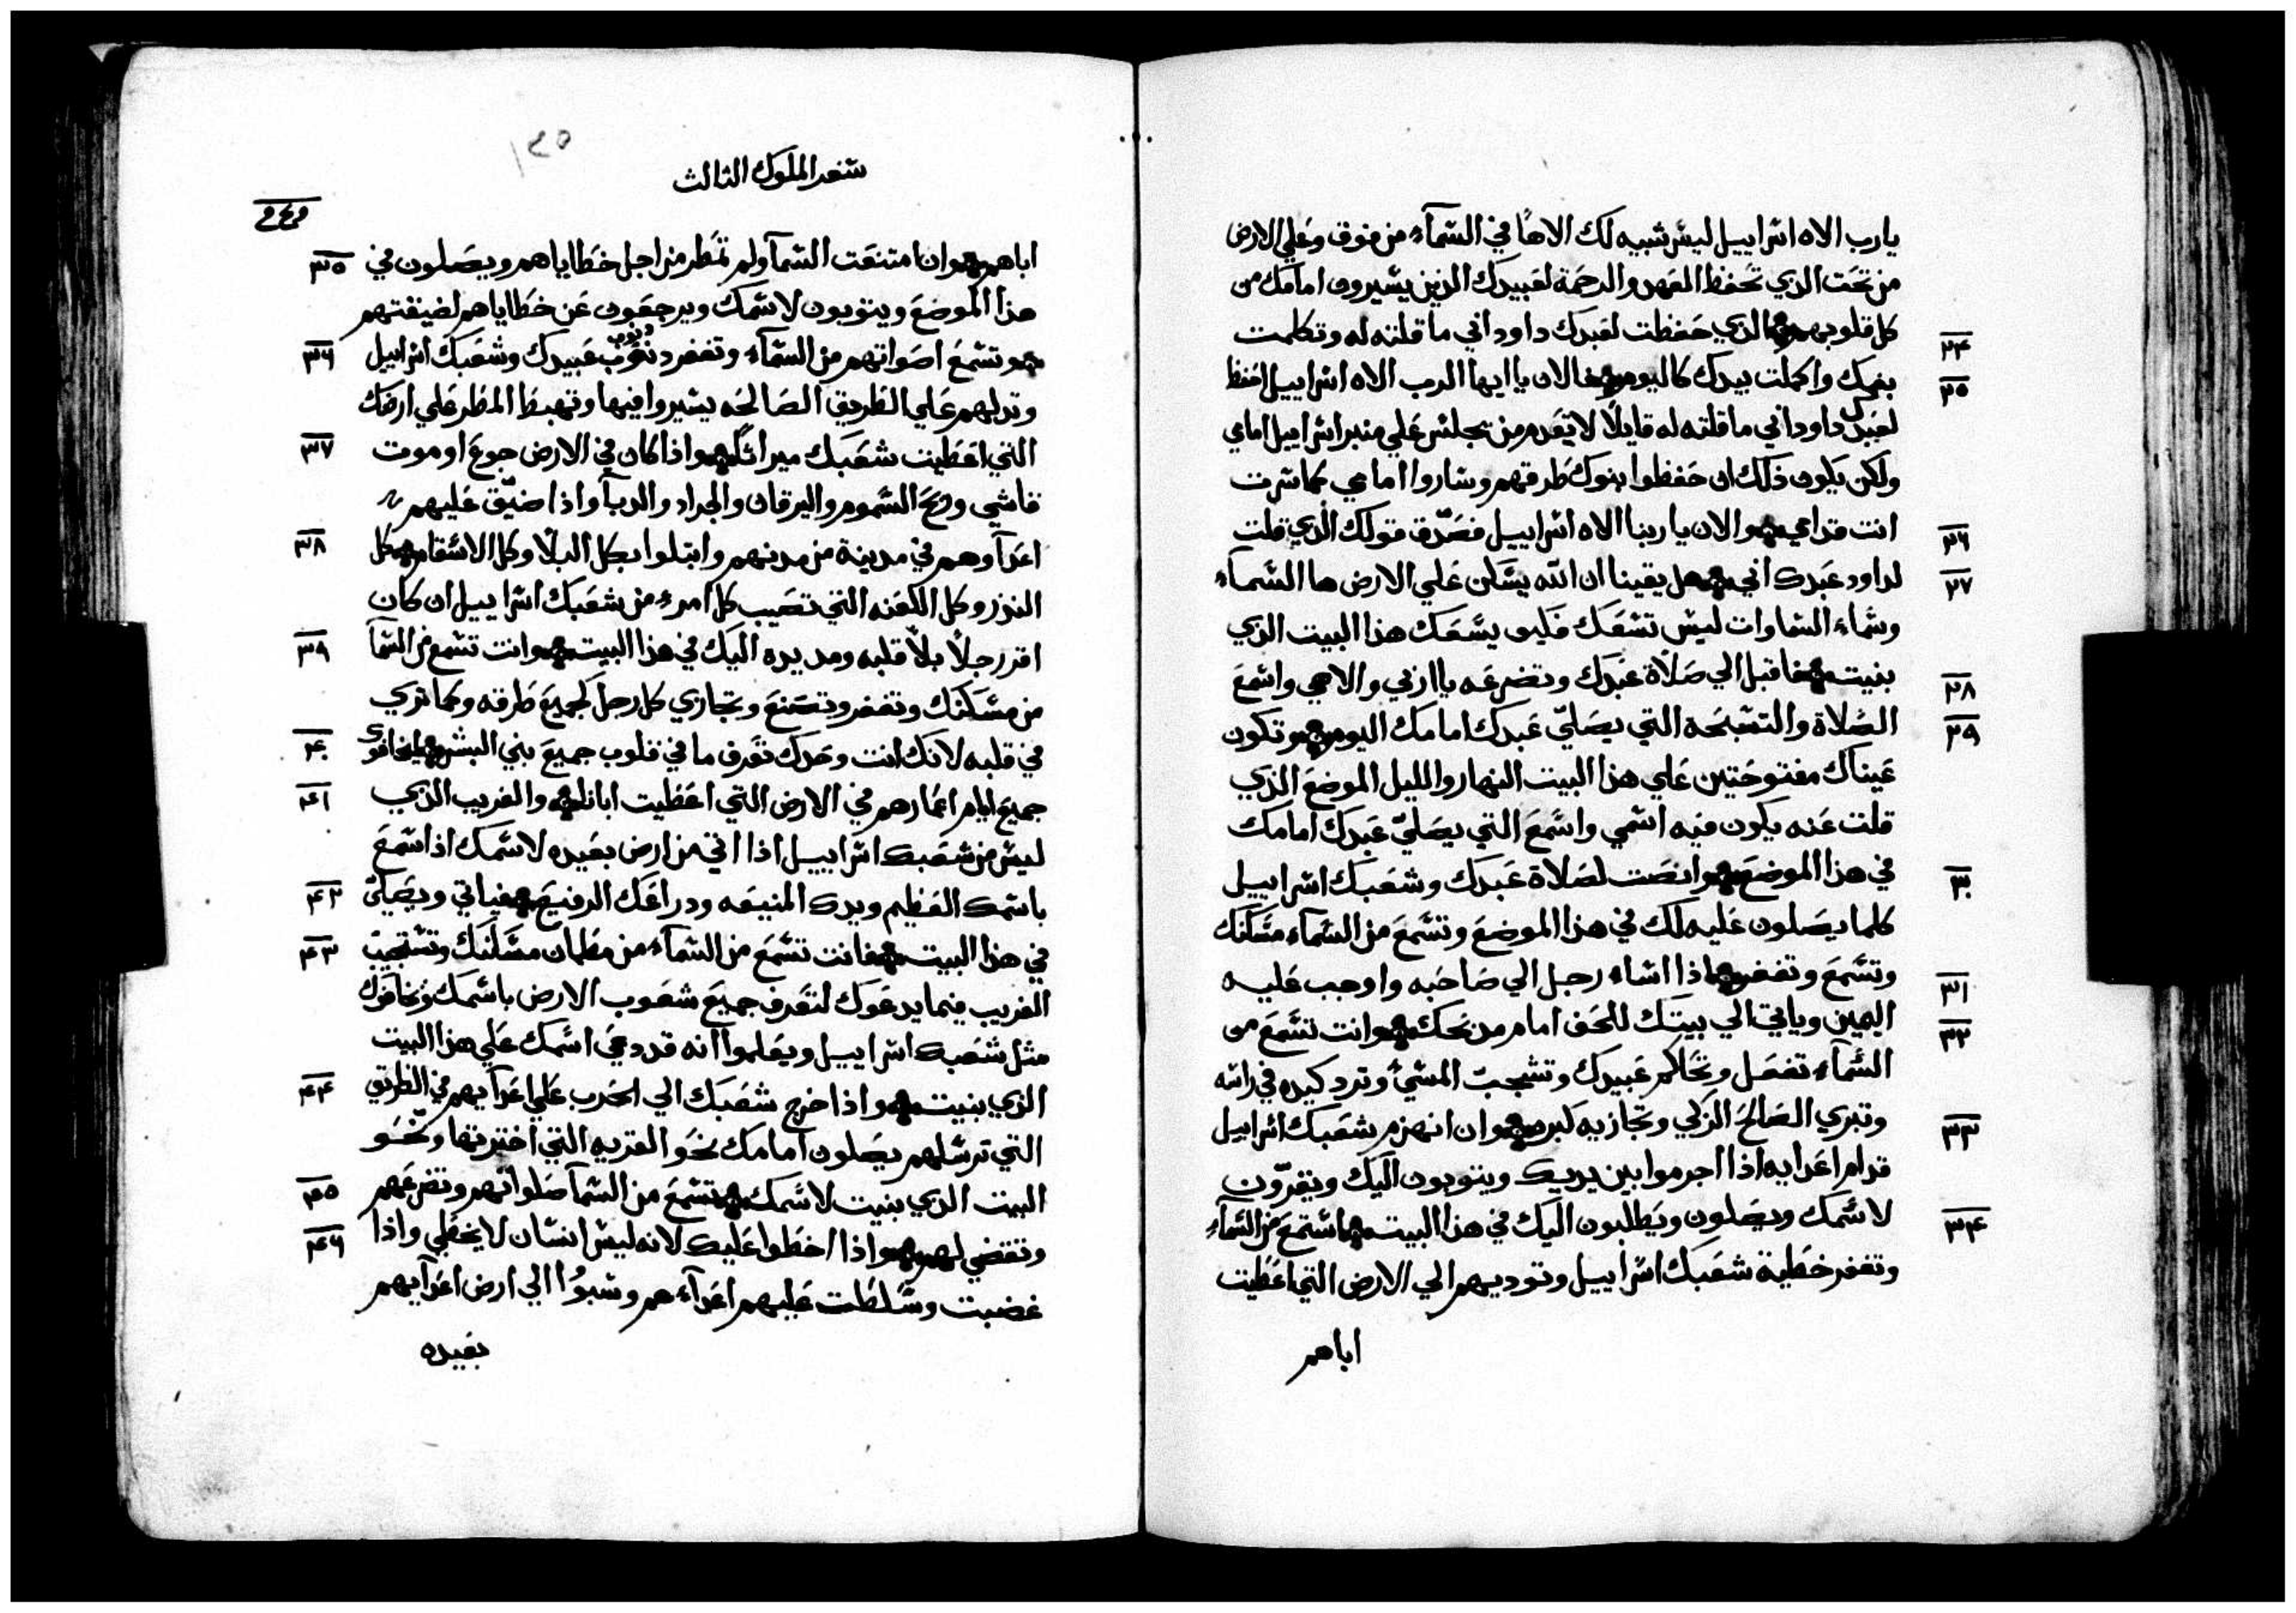 يارب الاه اسراييل ليس شبيه لك الاهًا في السمآء من فوق وعلي الارض
من تحت الذي تحفظ العهد والرحمة لعبيدك الذين يسيرون امامك من
كل قلوبهم الذي حفظت لعبدك داود ابي ما قلته له وتكلمت
٢٤
بفمك واكملت بيدك كاليوم فالان يا ايها الرب الاه اسراييل احفظ
٢٥
لعبدك داود ابي ما قلته له قايلًا لا يعدم من يجلس علي منبر اسراييل امامي
ولكن يكون ذلك ان حفظوا بنوك طرقهم وساروا امامي كما سرت
انت قدامي والان يا ربنا الاه اسراييل فصدّق قولك الذي قلت
٢٦
لداود عبدك ابي هل يقينا ان الله يسكن علي الارض ها السمآء
٢٧
وسماء السماوات ليس تسعك فكيف يسعك هذا البيت الذي
بنيت فاقبل الي صلاة عبدك وتضرعه يا ربي والاهي واسمع
٢٨
الصلاة والتسبحه التي يصليّ عبدك امامك اليوم وتكون
٢٩
عيناك مفتوحتين علي هذا البيت النهار والليل الموضع الذي
قلت عنه يكون فيه اسمي واسمع التي يصليّ عبدك امامك
في هذا الموضع وانصت لصلاة عبدك وشعبك اسراييل
٣٠
كلما يصلون عليه لك في هذا الموضع وتسمع من السمآء مسكنك
وتسمع وتغفر اذا اساء رجل الي صاحبه واوجب عليه
٣١
اليمين وياتي الي بيتك للحف امام مدبحك وانت تسمع من
٣٢
السمآء تفعل وتحاكم عبيدك وتشجب المسئ وترد كيده في راسه
وتبري الصالح الزكي وتجازيه كبره وان انهزم شعبك اسراييل
٣٣
قدام اعدايه اذا اجرموا بين يديك ويتوبون اليك ويقرّون
لاسمك ويصلون ويطلبون اليك في هذا البيت استمع من السمآء
٣٤
وتغفر خطية شعبك اسراييل وتوديهم الي الارض التي اعطيت
اباهم
١٢٥
سفر الملوك الثالث
اباهم وان امتنعت السمآ ولم تمطر من اجل خطاياهم ويصلون في
٣٥
هذا الموضع ويتوبون لاسمك ويرجعون عن خطاياهم لضيقتهم
وتسمع اصواتهم من السمآء وتغفر دنوب عبيدك وشعبك اسراييل
٣٦
وتدلهم علي الطريق الصالحه يسيروا فيها وتهبط المطر علي ارضك
التي اعطيت شعبك ميراثًا واذا كان في الارض جوع او موت
٣٧
فاشي وريح السموم واليرقان والجراد والدبآ واذا ضيّق عليهم
اعدآوهم في مدينة من مدنهم وابتلوا بكل البلآ وكل الاسقام كل
٣٨
النذر وكل اللعنه التي تصيب كل امرء من شعبك اسراييل ان كان
اقر رجلًا بلآ قلبه ومد يده اليك في هذا البيت وانت تسمع من السمآ
٣٩
من مسكنك وتغفر وتصنع وتجازي كل رجل لجميع طرقه وكما تري
في قلبه لانك انت وحدك تعرف ما في قلوب جميع بني البشر ليخافوك
٤٠
جميع ايام اعمارهم في الارض التي اعطيت ابانا والغريب الذي
٤١
ليس من شعبك اسراييل اذا اتي من ارض بعيده لاسمك اذا سمع
باسمك العظيم ويدك المنيعه ودراعك الرفيع فياتي ويصليّ
٤٢
في هذا البيت فانت تسمع من السمآء من مطمان مسكنك وتستجيب
٤٣
الغريب فيما يدعوك لتعرف جميع شعوب الارض باسمك وتخافوك
مثل شعبك اسراييل ويعلموا انه قد دعي اسمك علي هذا البيت
الذي بنيت واذا خرج شعبك الي الحرب علي اعدآيهم في الطريق
٤٤
التي ترسلهم يصلون امامك نحو القريه التي اخترتها ونحو
البيت الذي بنيت لاسمك تسمع من السمآ صلواتهم وتضرعهم
٤٥
وتقضي لهم واذا اخطوا عليك لانه ليس انسان لا يخطي واذا
٤٦
غضبت وسلطت عليهم اعدآءهم وسبوُا الي ارض اعدآيهم
بعيده